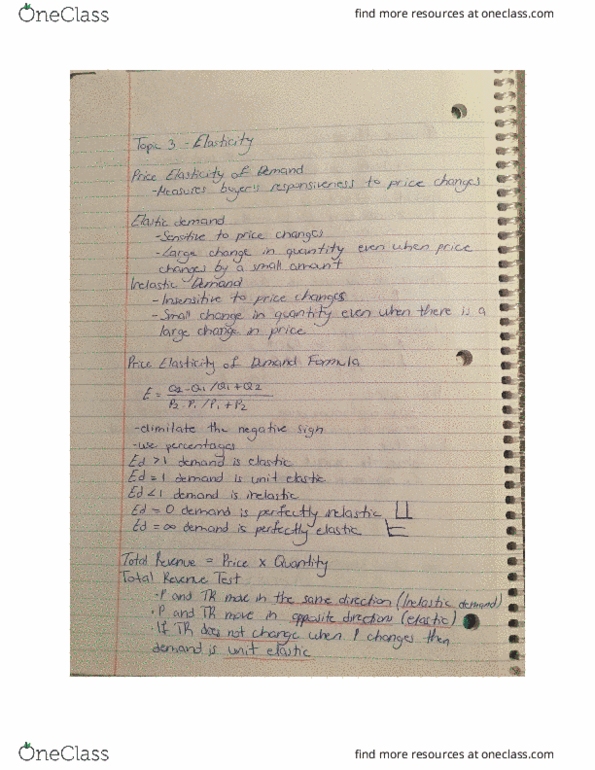 OneClass
find more resources at oneclass.com
Topic 3 - Elasticity
Price Elasticity of Demand
-Measures buyer's responsiveness to price changes
Elastic demand
-Sensitive to price changes
-Large change in quantity even when price
changes by a small amount
Inelastic Demand
-Insensitive to price changes
-Small change in quantity even when there is a
large change in price
Price Elasticity of Demand Formula
E = Q2-Q1/Q1+Q2
P2-P1/P1+P2
-elimilate the negative sign
-use percentages
Ed >1 demand is elastic
Ed = 1 demand is unit elastic
Ed <1 demand is inelastic
Ed = 0 demand is perfectly inelastic
Ed = ∞ demand is perfectly elastic
Total Revenue = Price x Quantity
Total Revenue Test
-P and TR move in the same direction (Inelastic demand)
·P and TR move in opposite directions (elastic)
·If TR does not change when P changes then
demand is unit elastic
OneClass
find more resources at oneclass.com